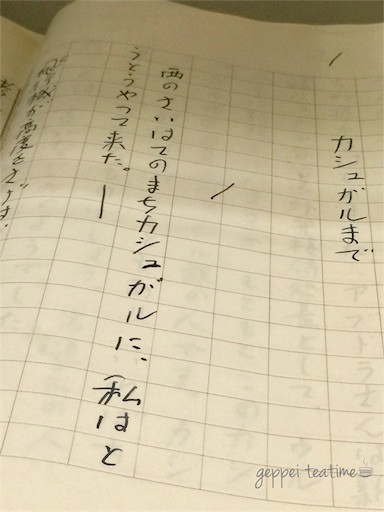 カシュガルまで
西のさいはてのまちカシュガルに、私はと
うとうやって来た。
geppei teatime